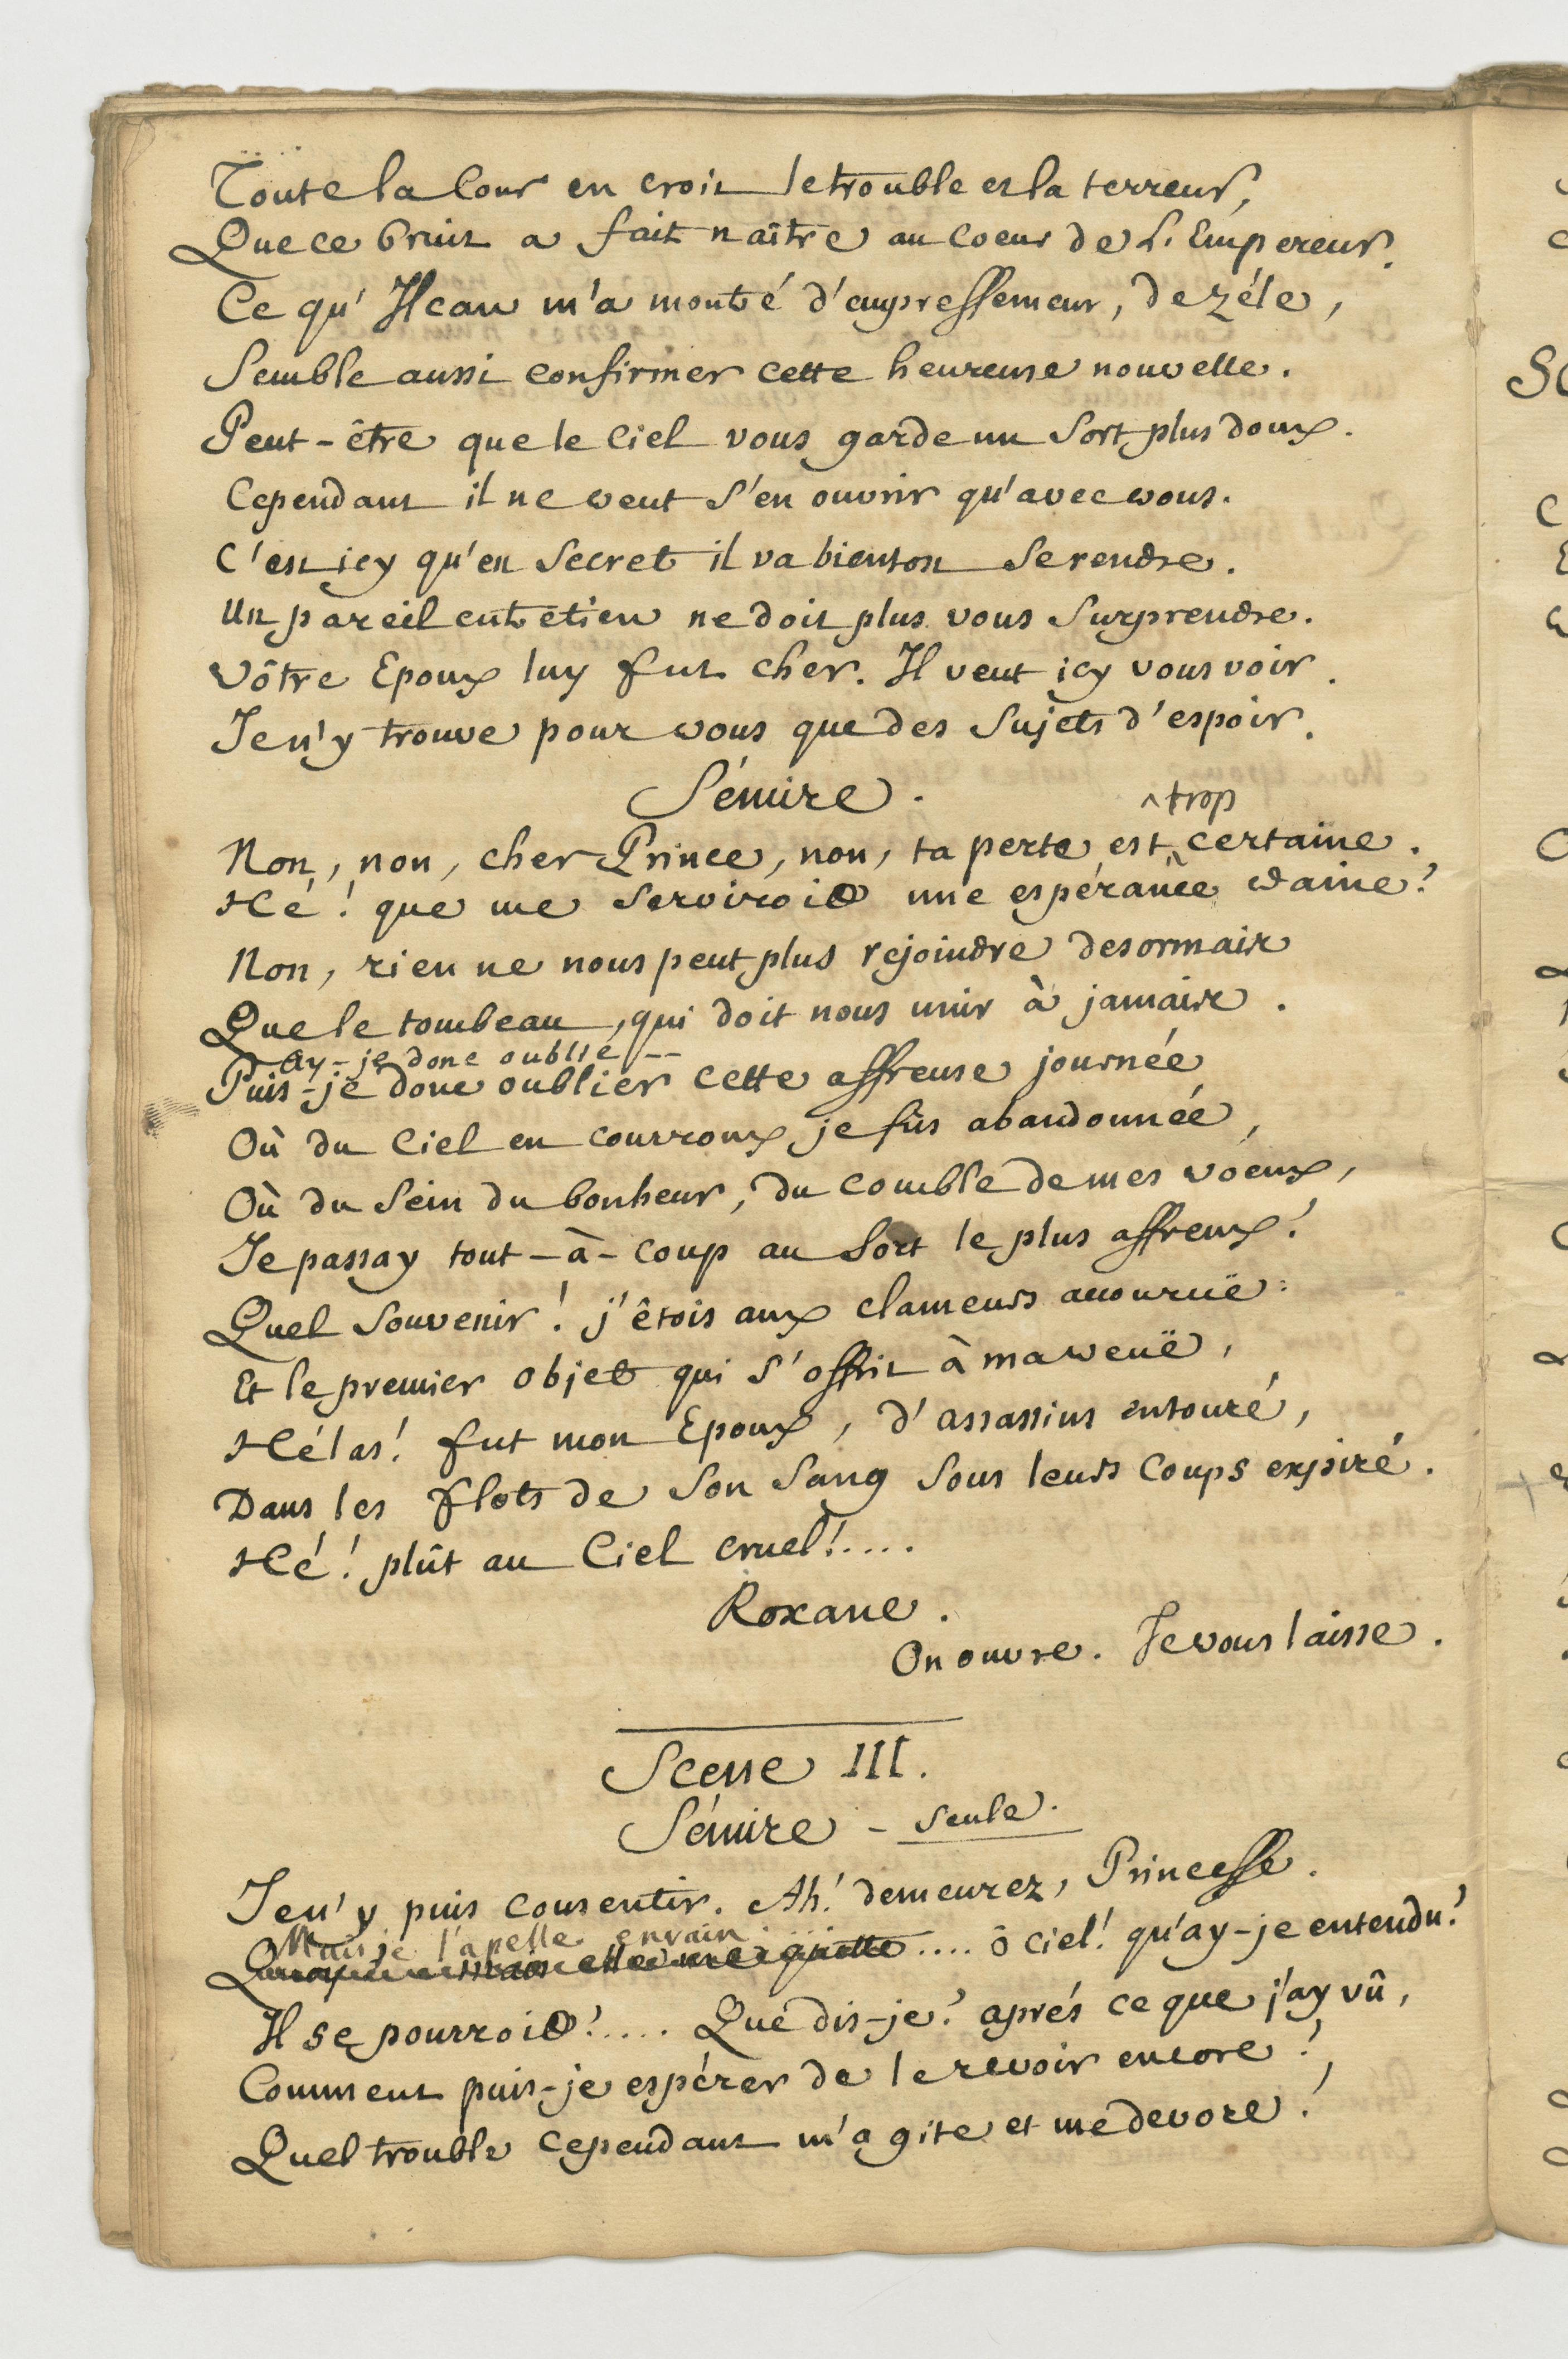 Toute la Cour en croit le trouble et la terreur,
Que ce bruit a fait naître au coeur de L'Empereur.
Ce qu'Ilcan m'a montré d'empressement, de zéle,
Semble aussi confirmer cette heureuse nouvelle.
Peut-être que le Ciel vous garde un Sort plus doux.
Cependant il ne veut S'en ouvrir qu'avec vous.
C'est icy qu'en Secret il va bientost Se rendre.
Un pareil entretien ne doit plus vous Surprendre.
Vôtre Epoux luy fut cher. Il veut icy vous voir.
Je n'y trouve pour vous que des Sujets d'espoir.
Sémire.
^ trop
Non, non, cher Prince, non, ta perte est ^ certaine.
Hé! que me Serviroit une espérance vaine?
Non, rien ne nous peut plus rejoindre desormais
Que le tombeau, qui doit nous unir à jamais.
Ay-je donc oublié --
Puis-je donc oublier cette affreuse journée
Où du Ciel en courroux je fûs abandonnée,
Où du Sein du bonheur, du comble de mes voeux,
Je passay tout-à-coup au Sort le plus affreux!
Quel Souvenir! j'êtois aux clameurs accouruë:
Et le premier objet qui S'offrit à ma veuë,
Hélas! fut mon Epoux, d'assassins entouré,
Dans les flots de Son Sang Sous leurs Coups expiré.
Hé! plût au Ciel cruel!....
Roxane.
On ouvre. Je vous laisse.
Scene III.
Sémire - seule.
Je n'y puis consentir. Ah! demeurez, Princesse.
Mais je l'apelle envain
mais elle me quitte .... ô Ciel! qu'ay-je entendu?
Il se pourroit!.... Que dis-je? aprés ce que j'ay vû,
Comment puis-je espérer de le revoir encore?
Quel trouble cependant m'agite et me devore!